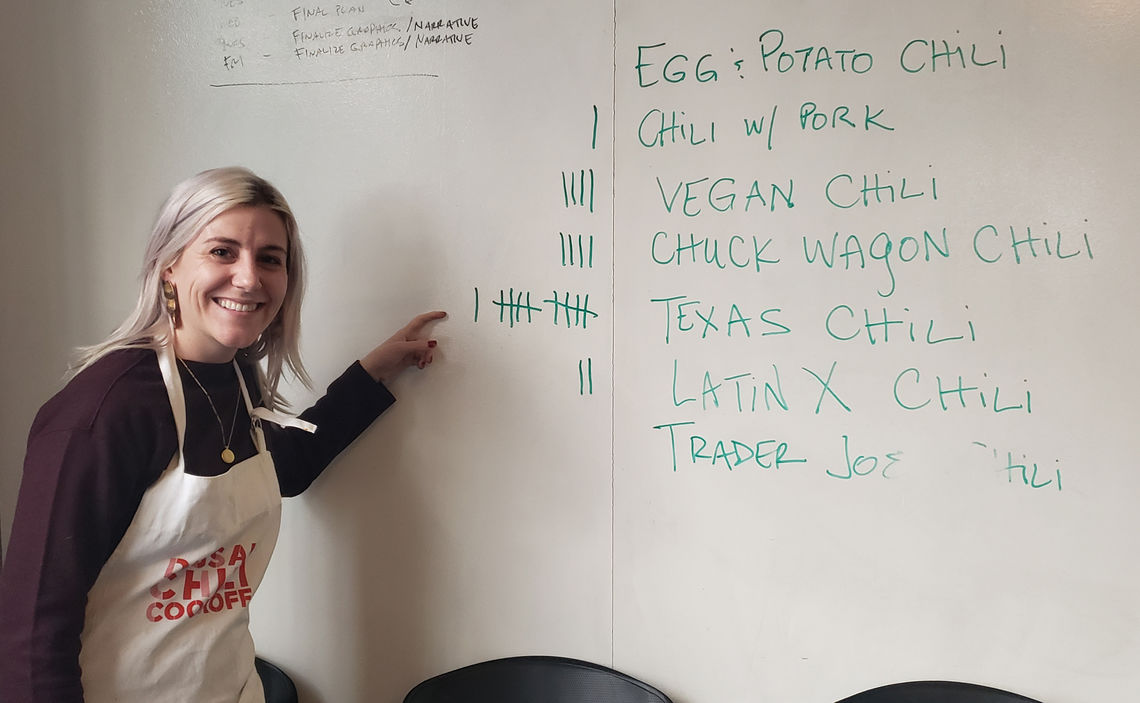 - FINAL PLAN
- FINALIZE GRAPHICS/NARRATIVE
FRI - FINALIZE GRAPHICS/NARRATIVE
EGG & POTATO CHILI
CHILI W/ PORK
VEGAN CHILI
CHUCK WAGON CHILI
TEXAS CHILI
LATIN X CHILI
TRADER JOE CHILI
CHILI
COOKOFF